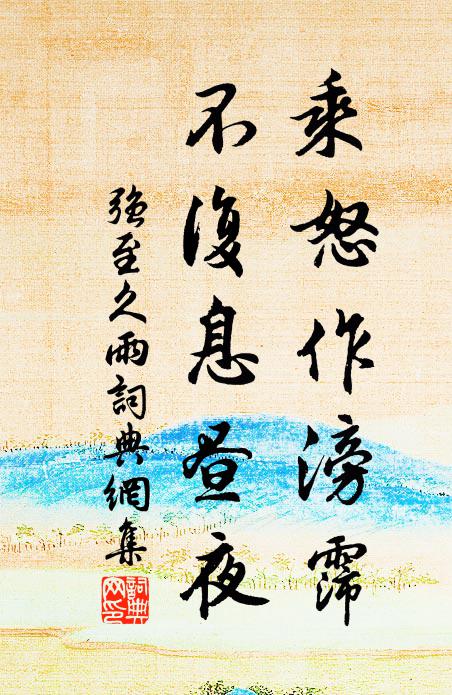 乘怒作滂霈
不復息昼夜
強至久雨詞典網集